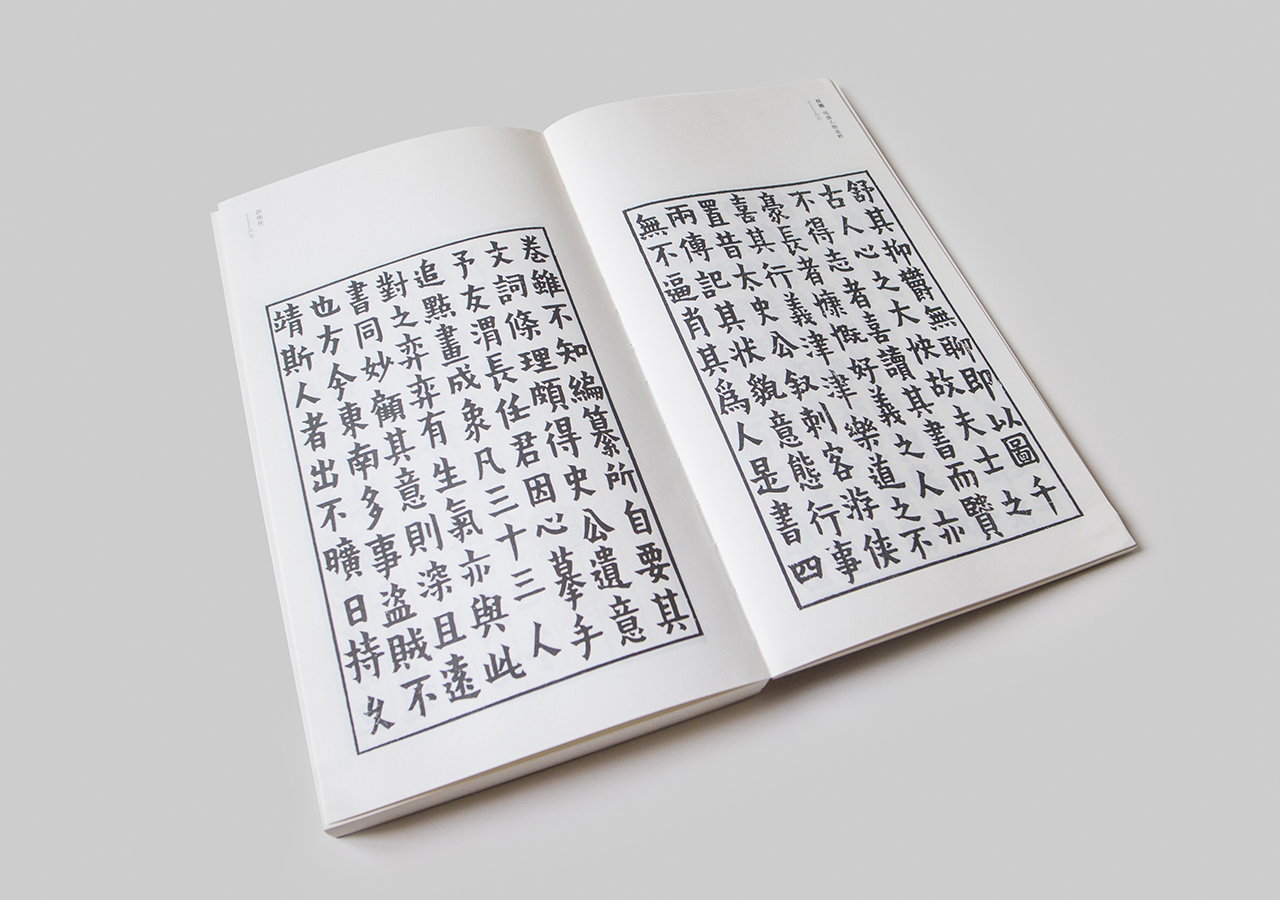 舒其抑欝無聊即以圖千
古人心之大快故夫士之
不得志者喜讀其書而贒
豪長者慷慨好義之人亦
喜其行義津津樂道之不
置昔太史公叙刺客游俠
兩傳記其狀貌意態行事
無不逼肖其爲人是書四
卷雖不知編纂所自要其
文詞條理頗得史公遺意
予友渭長任君因心摹手
追點畫成象凡三十三人
對之弈弈有生氣亦與此
書同妙顧其意則深且遠
也方今東南多事盜賊不
靖斯人者出不曠日持久